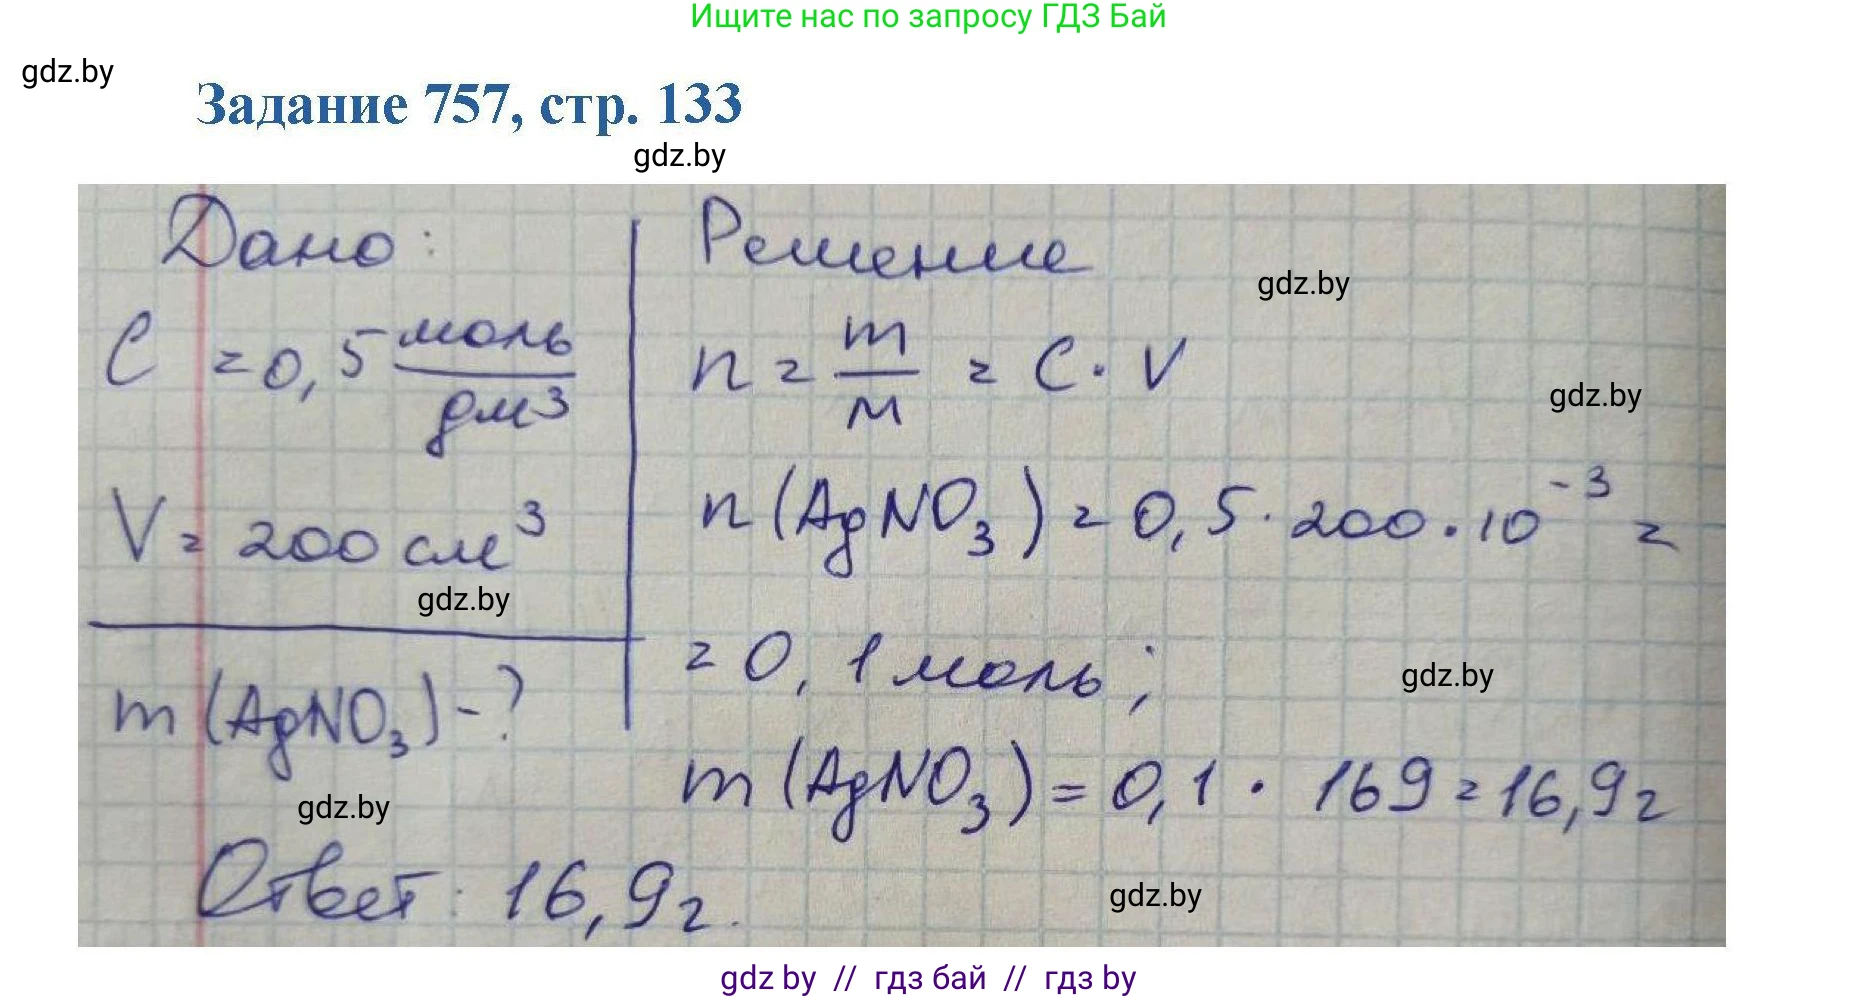 Ищите нас по запросу ГДЗ Бай
gdz.by
Задание 757, стр. 133
gdz.by
Дано:
C = 0,5 моль/дм³
V = 200 см³
gdz.by
m (AgNO₃) - ?
gdz.by
Решение
gdz.by
n = m/M = C · V
gdz.by
n (AgNO₃) = 0,5 · 200 · 10⁻³ =
= 0,1 моль;
gdz.by
m (AgNO₃) = 0,1 · 169 = 16,9 г
Ответ: 16,9 г.
gdz.by
gdz by // гдз бай // гдз by